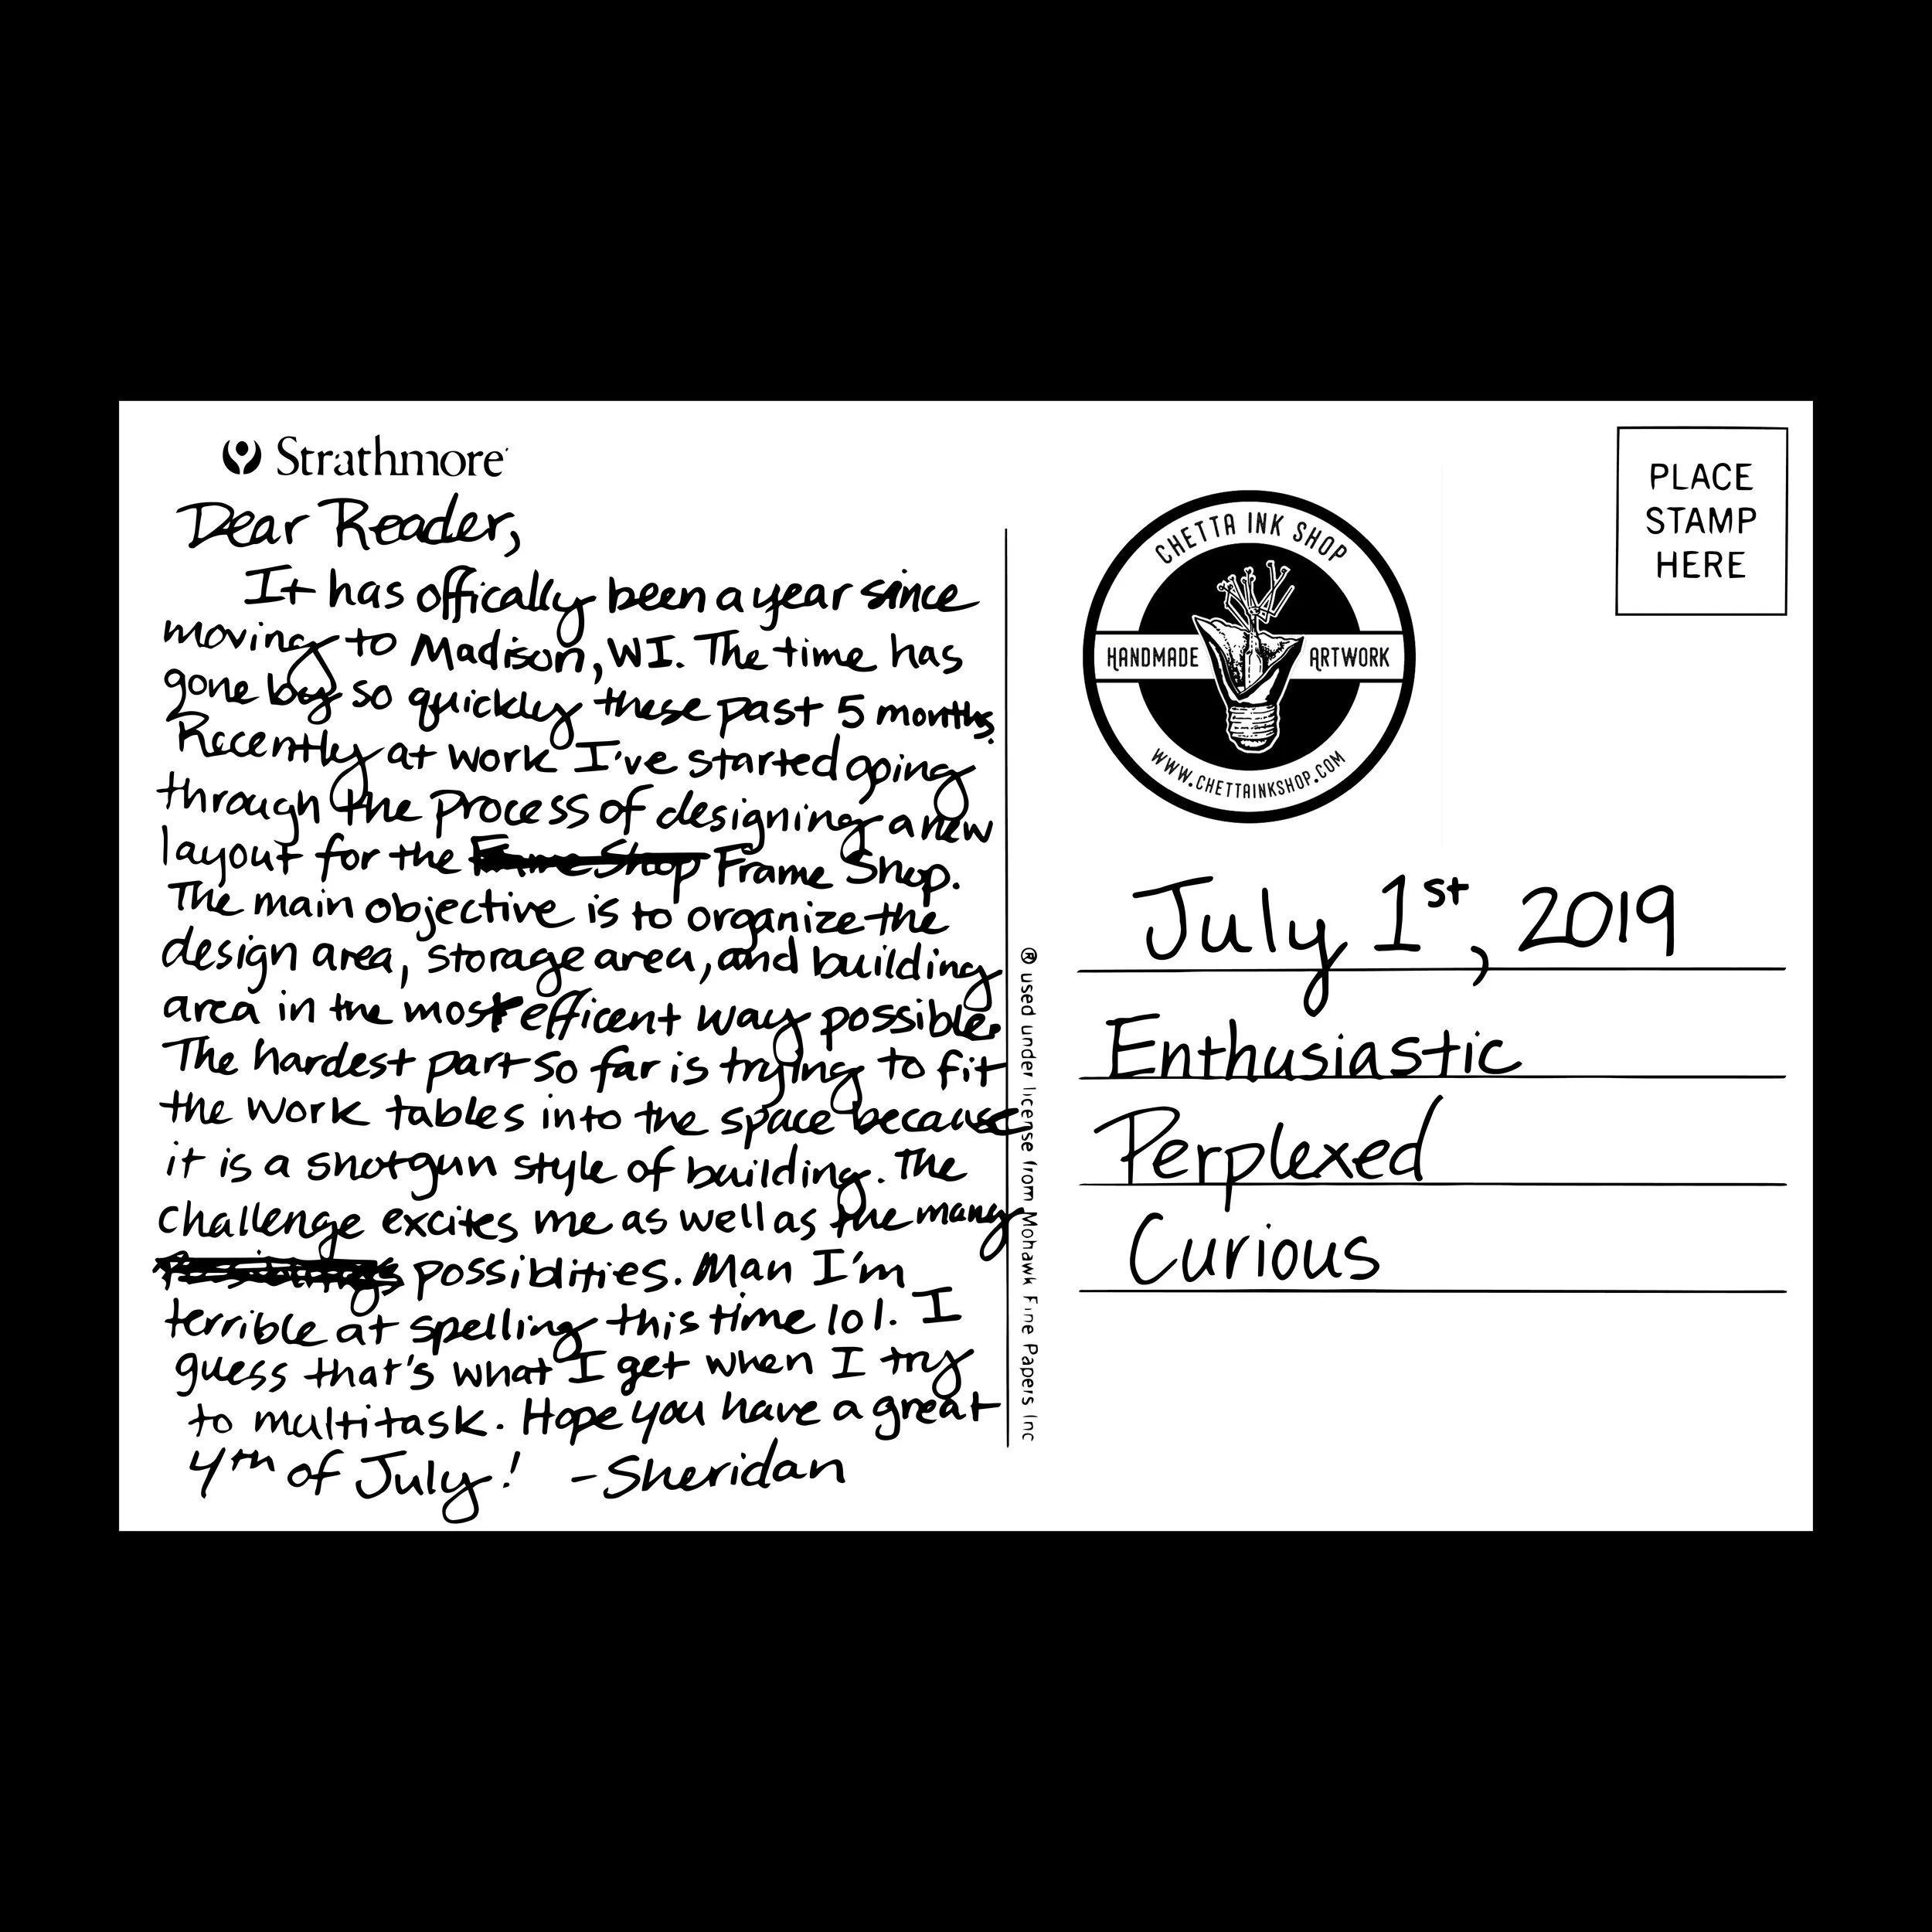 Strathmore
Dear Reader,
It has offically been a year since
moving to Madison, WI. The time has
gone by so quickly these past 5 months.
Recently at work I've started going
through the process of designing a new
layout for the Frame Shop Frame Shop.
The main objective is to organize the
design area, storage area, and building
area in the most efficent way possible.
The hardest part so far is trying to fit
the work tables into the space because
it is a shotgun style of building. The
challenge excites me as well as the many
possiblities. Man I'm
terrible at spelling this time lol. I
guess that's what I get when I try
to multitask. Hope you have a great
4th of July! -Sheridan
® used under license from Mohawk Fine Papers Inc
CHETTA INK SHOP
HANDMADE ARTWORK
WWW.CHETTAINKSHOP.COM
PLACE
STAMP
HERE
July 1st, 2019
Enthusiastic
Perplexed
Curious